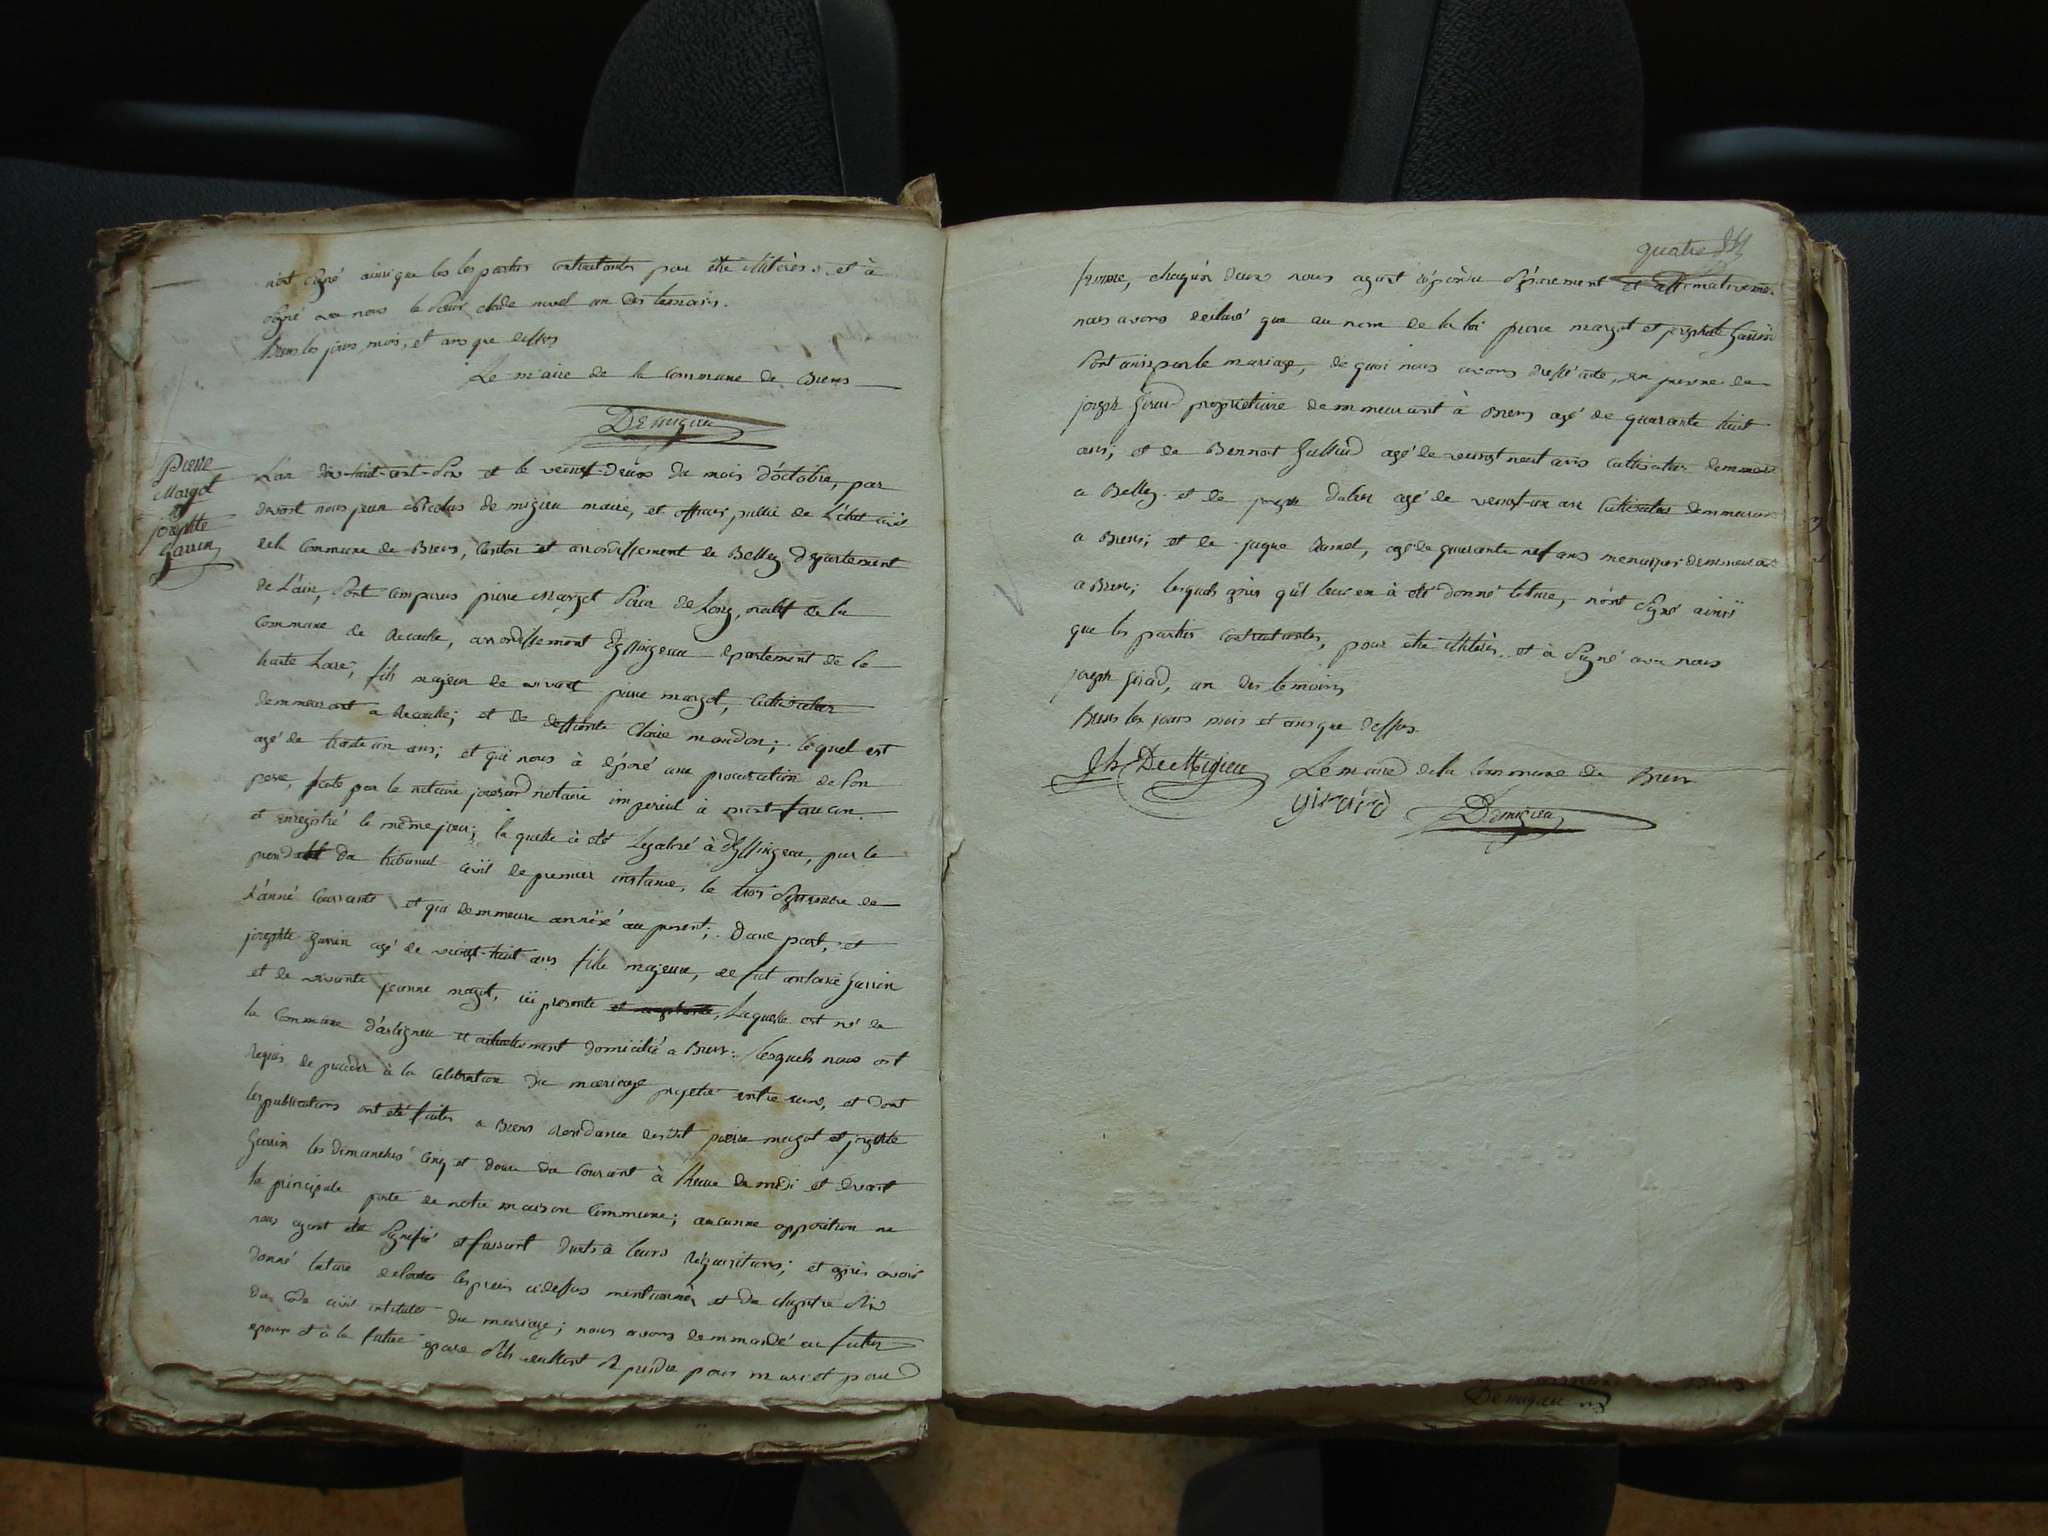 n'ont signé ainsi que les les parties contractantes pour être illiterés. et à
signé avec nous le sieur un des temoins.
Brens les jours, mois, et ans que dessus
Le maire de la Commune de Brens
Demigieu
Pierre
Margot
et
josephte
Garrin
L'an dix-huit-cent-dix et le veingt-deux du mois d'octobre, par
devant nous jean nicolas de migieu maire, et officier public de L'état civil
de la Commune de Brens, Canton et arrondissement de Belley departement
de L'ain, sont comparus pierre Margot sieur de Long, natif de la
Commune de arrondissement d'yssingeau departement de la
haute Loire, fils majeur de vivant pierre margot, Cultivateur
demmeurant a et de deffunte Claire moudon; lequel est
agé de trente un ans; et qui nous à déposé une procuration de son
pere, faite par le notaire notaire imperial à mont-faucon.
et enregistré le même jour; la quelle à été Legalisé à d'yssingeau, par le
president du tribunal civil de premier instance, le trois septembre de
L'anné Courrante et qui demmeure annéxé au present; d'une part, et
josephte Garrin agé de veingt-huit ans fille majeure, de fut antoine Garrin
et de vivante jeanne magot, ici presente Laquelle est né de
la Commune d'arbignieu et actuellement domicilié a Brens. lesquels nous ont
requis de proceder à la celebration du mariage projetté entre eux, et dont
les publications ont été faites a Brens residance desdit pierre magot et josephte
Garrin les dimanches cinq et douze du Courant à l'heure de midi et devant
la principale porte de notre maison Commune; aucunne opposition ne
nous ayant été signifié et faisant droits à leurs réquisitions; et après avoir
donné lecture de toutes les pieces ci dessus mentionnés, et du chapitre six
du code civil intitulés du mariage; nous avons demmandé au futur
epoux et à la future epouse s'ils veullent se prendre pour mari et pour
quatre
femme, chaqu'un deux nous ayant répondu séparement et affirmativement
nous avons declaré que au nom de la loi pierre margot et josephte Garrin
sont unis par le mariage, de quoi nous avons dressé acte, en presence de
joseph Girard propriétaire demmeurant à Brens agé de quarante huit
ans, et de Bennoit Gulliud agé de veingt neuf ans Cultivateur demmeurt
a Belley et de joseph agé de veingt-un ans Cultivateur demmeurant
a Brens; et de jaque agé de quarante nef ans menuisier demmeurant
a Brens; lesquels après qu'il leur en à été donné lecture, n'ont signé ainsi
que les parties contractantes, pour être illiterés. et à signé avec nous
joseph Girard, un des temoins
Brens les jours mois et ans que dessus.
Jh DeMigieu
Le maire de la Commune de Brens
girard
Demigieu
Demigieu